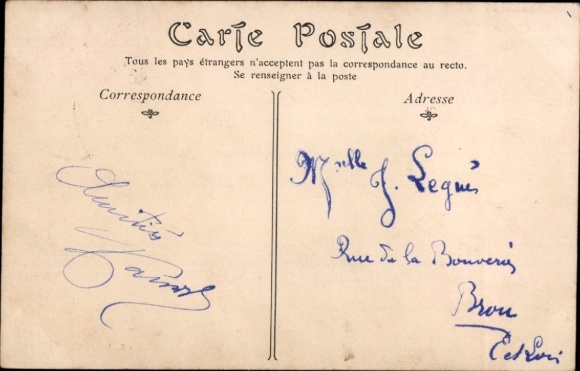 Carte Postale
Tous les pays étrangers n'acceptent pas la correspondance au recto.
Se renseigner à la poste
Correspondance
Adresse
Amitiés
Melle J. Legué
Rue de la Bouverie
Brou
E et Loir